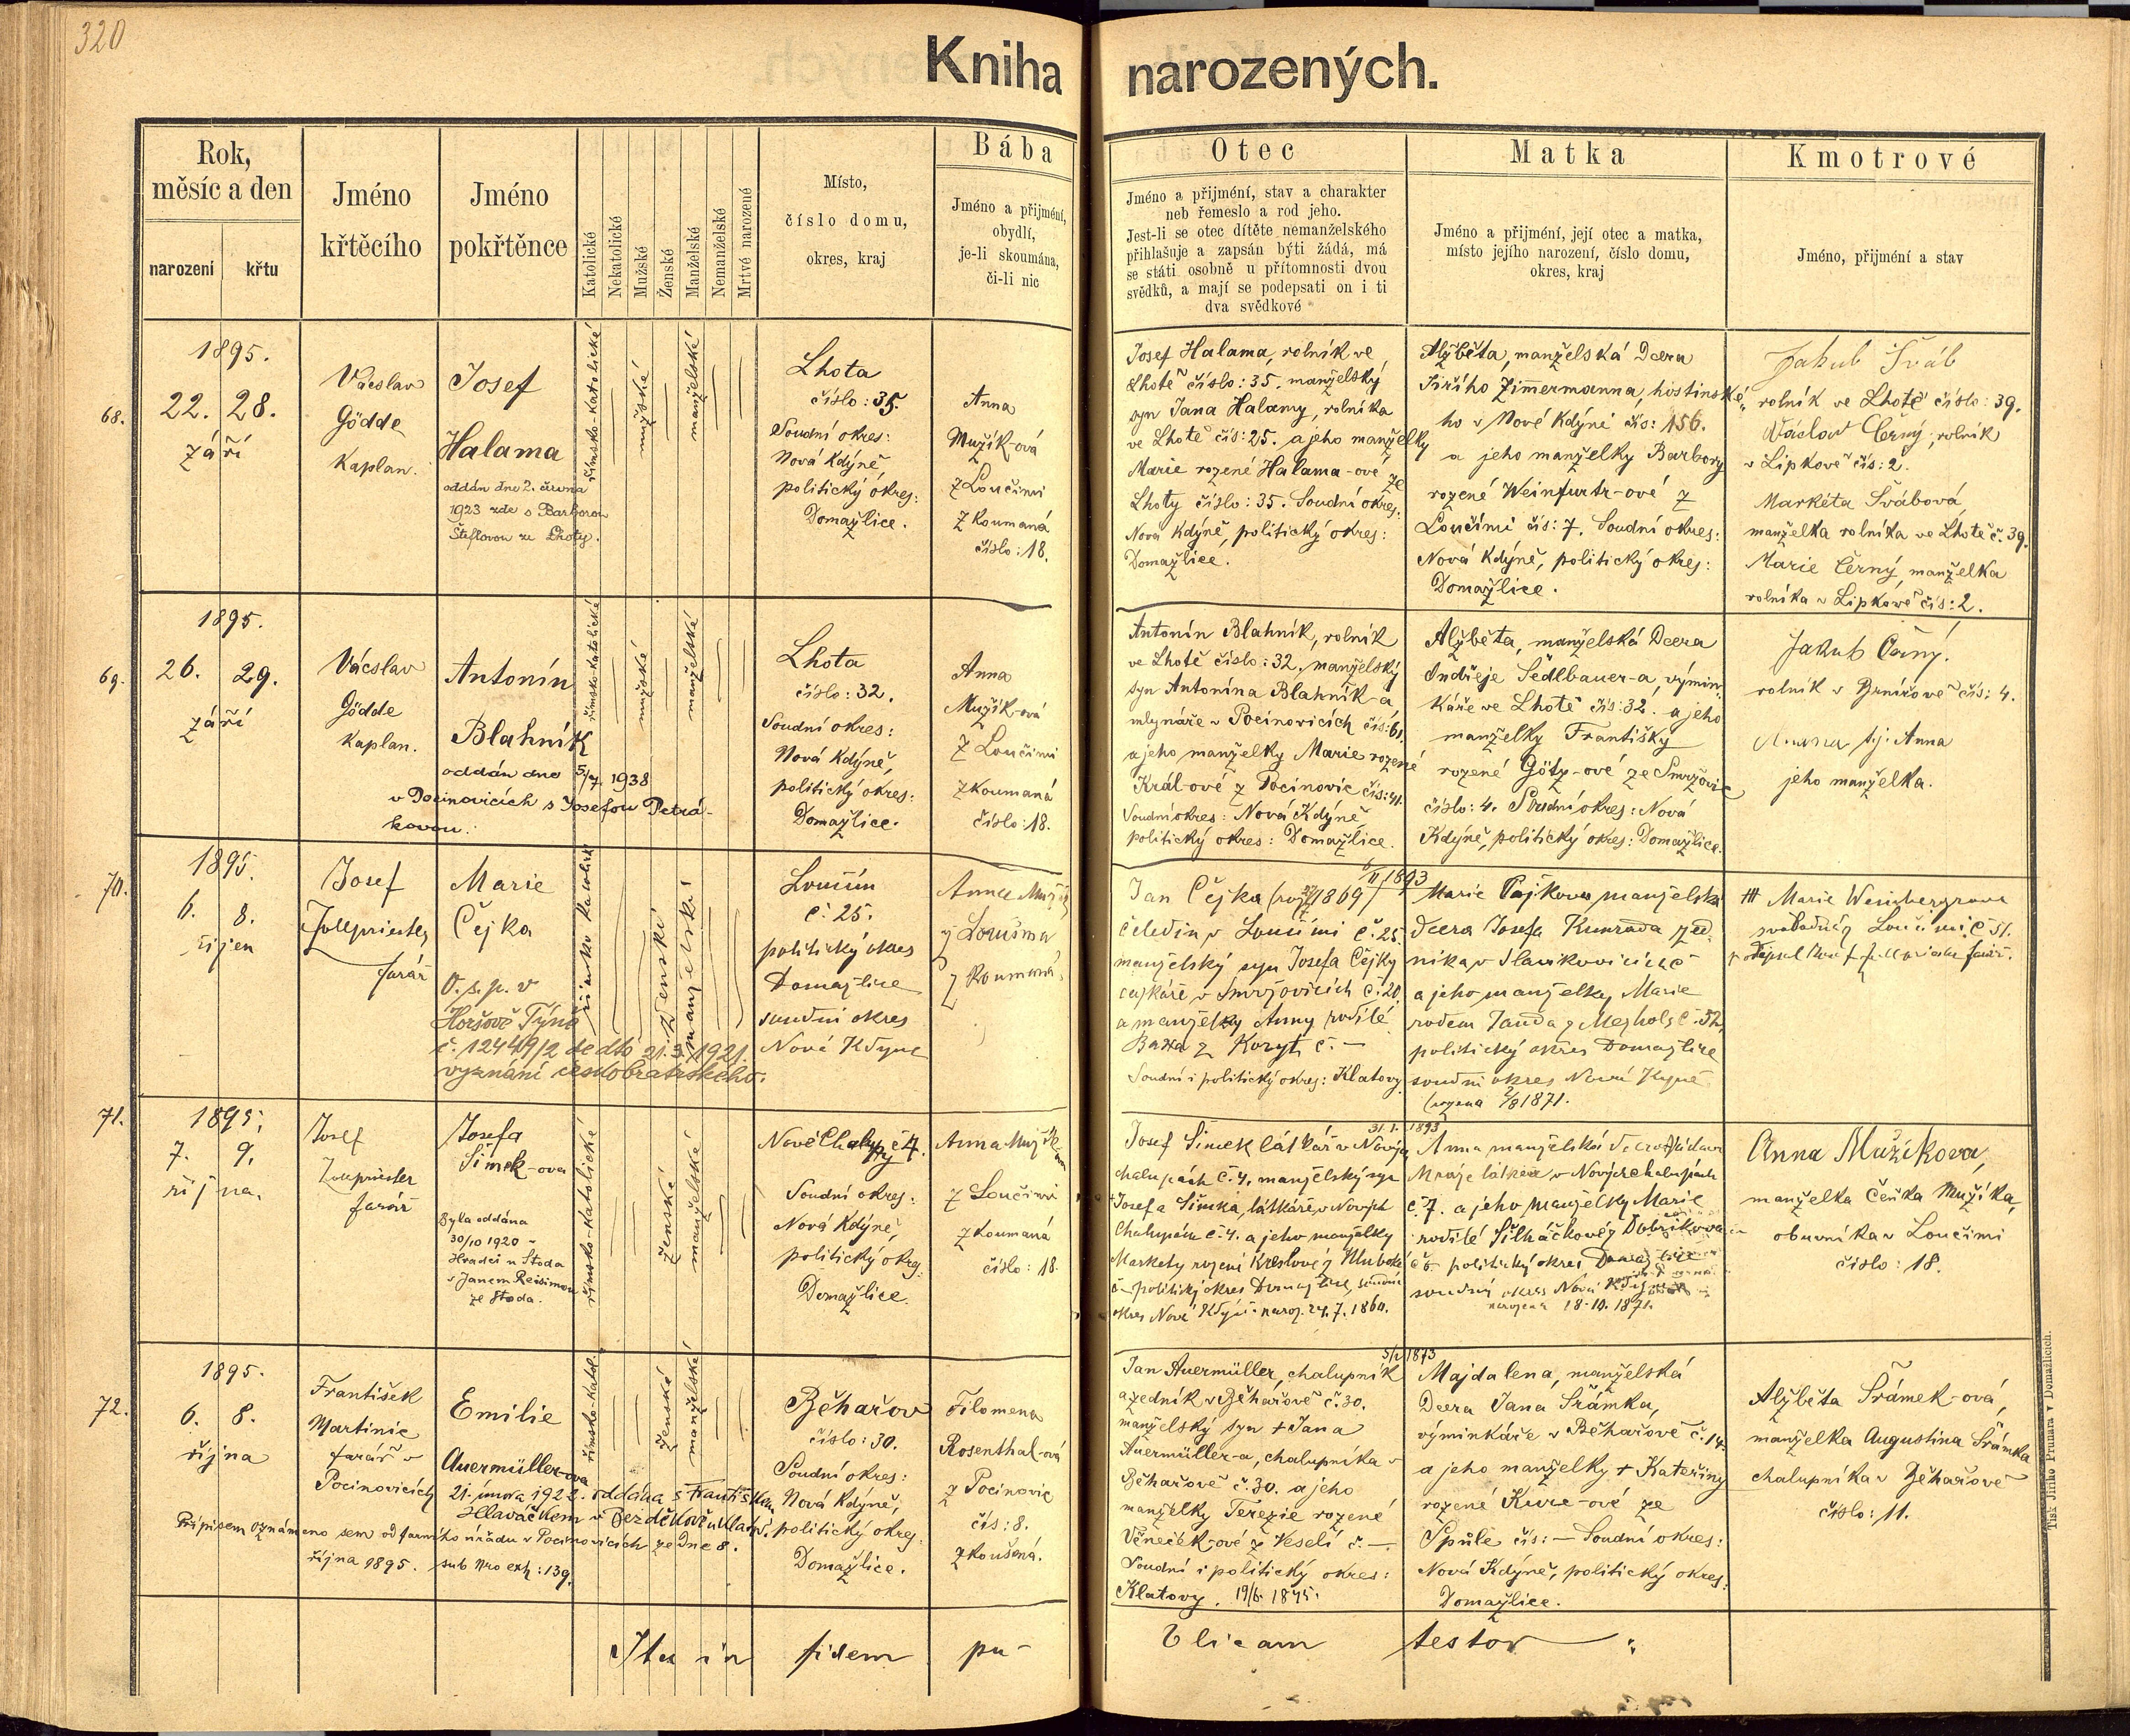 320
Kniha narozených.
Rok,
měsíc a den
narození
křtu
Jméno
křtěcího
Jméno
pokřtěnce
Katolické
Nekatolické
Mužské
Ženské
Manželské
Nemanželské
Mrtvé narozené
Místo,
číslo domu,
okres, kraj
Bába
Jméno a přijmění,
obydlí,
je-li skoumána,
či-li nic
Otec
Jméno a přijmění, stav a charakter
neb řemeslo a rod jeho.
Jest-li se otec dítěte nemanželského
přihlašuje a zapsán býti žádá, má
se státi osobně u přítomnosti dvou
svědků, a mají se podepsati on i ti
dva svědkové
Matka
Jméno a přijmění, její otec a matka,
místo jejího narození, číslo domu,
okres, kraj
Kmotrové
Jméno, přijmění a stav
68.
1895.
22. 28.
září
Václav
Gödde
Kaplan.
Josef
Halama
oddán dne 2. června
1923 zde s Barborou
Šteflovou ze Lhoty.
římsko-katolické
mužské
manželské
Lhota
číslo: 35.
Soudní okres:
Nová Kdýně,
politický okres:
Domažlice.
Anna
Mužík-ová
z Loučimi
zkoumaná
číslo: 18.
Josef Halama, rolník ve
Lhotě číslo: 35. manželský
syn Jana Halamy, rolníka
ve Lhotě čís: 25. a jeho manželky
Marie rozené Halama-ové ze
Lhoty číslo: 35. Soudní okres:
Nová Kdýně, politický okres:
Domažlice.
Alžběta, manželská dcera
Jiřího Zimermanna, hostinské-
ho v Nové Kdýni čís: 156.
a jeho manželky Barbory
rozené Weinfurtr-ové z
Loučimi čís: 7. Soudní okres:
Nová Kdýně, politický okres:
Domažlice.
Jakub Šváb
rolník ve Lhotě číslo: 39.
Václav Černý, rolník
v Lipkově čís: 2.
Markéta Švábová,
manželka rolníka ve Lhotě č. 39.
Marie Černý, manželka
rolníka v Lipkově čís: 2.
69.
1895.
26. 29.
září
Václav
Gödde
Kaplan.
Antonín
Blahník
oddán dne 5/7. 1938
v Pocinovicích s Josefou Petrá-
kovou.
římsko-katolické
mužské
manželské
Lhota
číslo: 32.
Soudní okres:
Nová Kdýně,
politický okres:
Domažlice.
Anna
Mužík-ová
z Loučimi
zkoumaná
číslo: 18.
Antonín Blahník, rolník
ve Lhotě číslo: 32, manželský
syn Antonína Blahník-a,
mlynáře v Pocinovicích čís: 61.
a jeho manželky Marie rozené
Král-ové z Pocinovic čís: 41.
Soudní okres: Nová Kdýně,
politický okres: Domažlice.
Alžběta, manželská dcera
Ondřeje Sedlbauer-a, výmin-
káře ve Lhotě čís: 32. a jeho
manželky Františky
rozené Götz-ové ze Smržovic
číslo: 4. Soudní okres: Nová
Kdýně, politický okres: Domažlice.
Jakub Černý.
rolník v Brnířově čís: 4.
t.j. Anna
jeho manželka.
70.
1895.
6. 8.
říjen
Josef
farář
Marie
Čejka
O. s. p. v
Horšově Týně
č. 12449/2 de dto 21.3.1921.
vyznání českobratrského.
římsko katolické
ženské
manželské
Loučim
č. 25.
politický okres
Domažlice
soudní okres
Nová Kdyně
Anna
z Loučima
zkoumaná
6/II 1893
Jan Čejka 1869)
čeledín v Loučimi č. 25.
manželský syn Josefa Čejky
v Smržovicích č. 20
a manželky Anny rodilé
Baxa z Koryt č. —
Soudní i politický okres: Klatovy
Marie manželská
dcera Josefa Kunrada
níka v Slavikovicích č
a jeho manželky Marie
rodem Janda z Mezholz č. 32.
politický okres Domažlice
soudní okres Nová Kdyně
(rozena 2/8 1871.
+++ Marie
svobodná z Loučimi č 51.
farář.
71.
1895.
7. 9.
října.
Josef
farář
Josefa
Šimek-ova
Byla oddána
30/10 1920 v
Hradci u Stoda
s Janem Reisimou
ze Stoda.
římsko-katolické
ženské
manželské
Nové Chalupy č 4.
Soudní okres:
Nová Kdýně,
politický okres:
Domažlice.
Anna
z Loučimi
zkoumaná
číslo: 18.
31. 1. 1893
Josef Šimek látkář v Nových
chalupách č. 4. manželský syn
Josefa Šimka, látkáře v Nových
Chalupách č. 4. a jeho manželky
Markety rozené Kreslové z Hluboké
č — politický okres Domažlice, soudní
okres Nová Kdyně naroz. 24. 7. 1860.
Anna manželská dcera
v Nových chalupách
č 7. a jeho manželky Marie
rodilé Šilháčkové z Dobříkova
č 6 politický okres Domažlice
soudní okres Nová Kdyně
narozena 18. 10. 1871.
Anna Mužíkova,
manželka Čeňka Mužíka,
obuvníka v Loučimi
číslo: 18.
72.
1895.
6. 8.
října
František
Martinic
farář v
Pocinovicích
Emilie
Auermüller-ova
21. února 1922. oddána s Františkem
Hlaváčkem v Bezděkově u Klatov.
Přípisem oznámeno sem od farního úřadu v Pocinovicích ze dne 8.
října 1895. sub Nro exh: 139.
římsko-katol.
ženské
manželské
Běhařov
číslo: 30.
Soudní okres:
Nová Kdýně,
politický okres:
Domažlice.
Filomena
Rosenthal-ová
z Pocinovic
čís: 8.
zkoušená.
5/2 1873
Jan Auermüller, chalupník
a zedník v Běhařově č. 30.
manželský syn + Jana
Auermüller-a, chalupníka v
Běhařově č. 30. a jeho
manželky Terezie rozené
Věneček-ové z Veselí č. —.
Soudní i politický okres:
Klatovy. 19/6. 1845.
Majdalena, manželská
dcera Jana Šrámka,
výminkáře v Běhařově č. 14.
a jeho manželky + Kateřiny
rozené Kure-ové ze
Spůle čís: — Soudní okres:
Nová Kdýně, politický okres:
Domažlice.
Alžběta Šrámek-ová,
manželka Augustina Šrámka
chalupníka v Běhařově
číslo: 11.
Ita in fidem pu- blicam testor
Tisk Jiřího Prunara v Domažlicích.